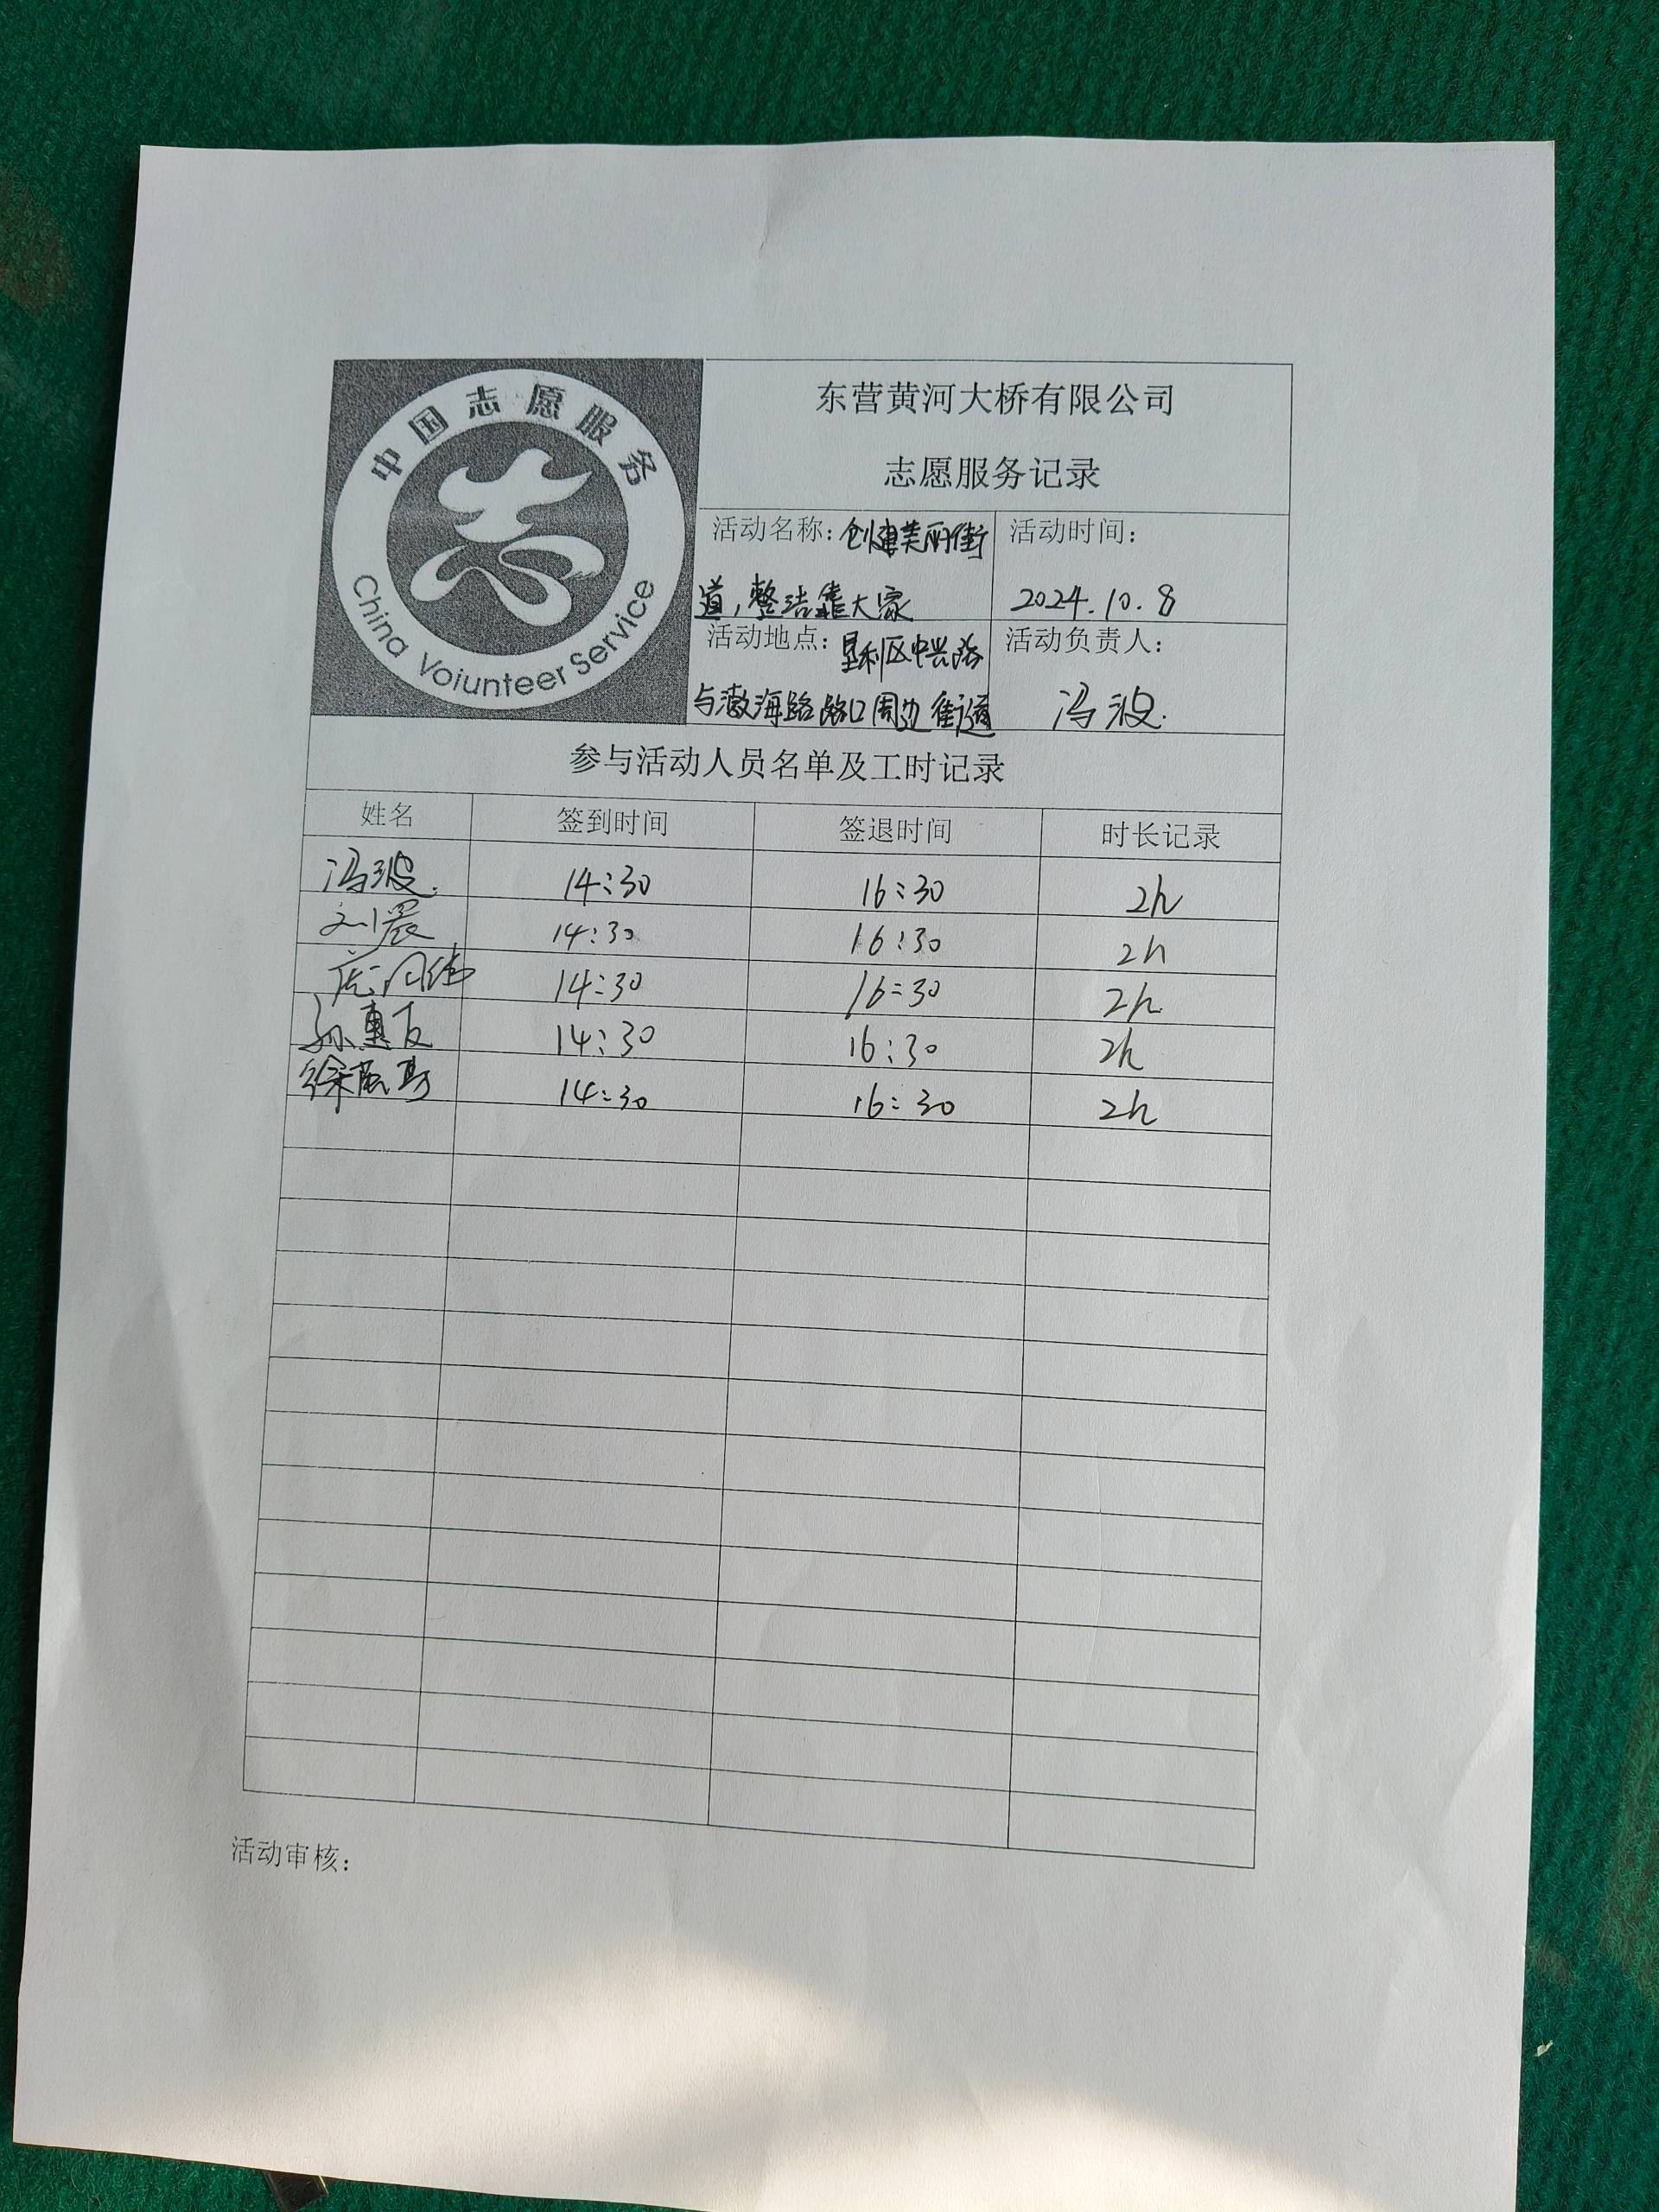 中国志愿服务
China Volunteer Service
东营黄河大桥有限公司
志愿服务记录
活动名称：创建美丽街
道，整洁靠大家
活动时间：
2024.10.8
活动地点：垦利区中兴路
与渤海路路口周边街道
活动负责人：
冯波
参与活动人员名单及工时记录
姓名 签到时间 签退时间 时长记录
冯波 14:30 16:30 2h
刘晨 14:30 16:30 2h
14:30 16:30 2h
孙惠友 14:30 16:30 2h
14:30 16:30 2h
活动审核：